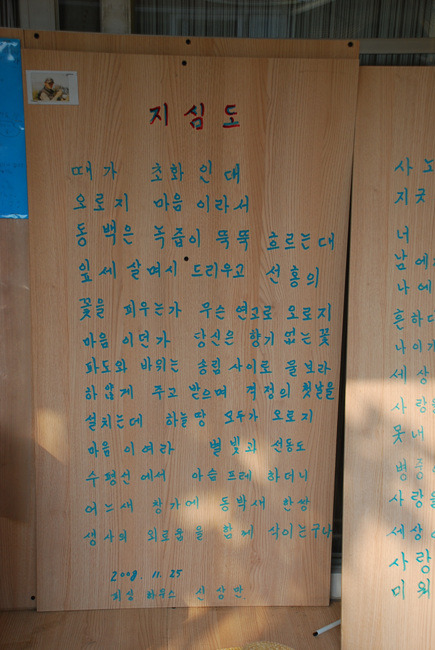 지 심 도
때가 초화 인데
오로지 마음 이라서
동백은 녹즙이 뚝뚝 흐르는데
잎세 살며시 드리우고 선홍의
꽃을 피우는가 무슨 연고로 오로지
마음 이던가 당신은 향기 없는 꽃
파도와 바위는 송림 사이로 물보라
하얗게 주고 받으며 격정의 첫날을
설치는데 하늘 땅 모두가 오로지
마음 이여라 별빛과 선동도
수평선에서 아슬프레 하더니
어느새 창가에 동박새 한쌍
생사의 외로움을 함께 삭이는구나
2008. 11. 25
하우스 신상만
사
지
너
남에
나에
흔하다
나이가
세상
사랑을
못내
병중
사랑을
세상
사랑
미워